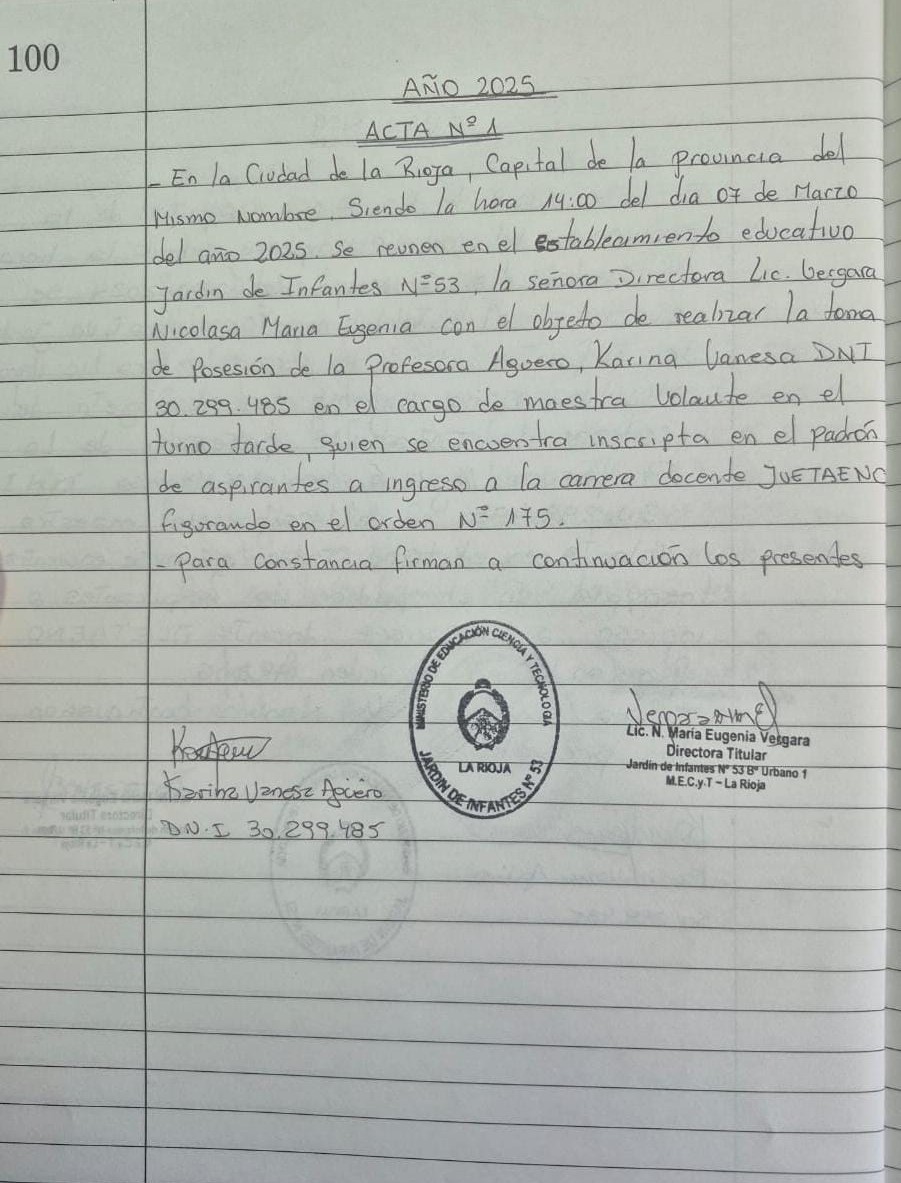 100
AÑO 2025
ACTA Nº 1
- En la Ciudad de la Rioja, Capital de la Provincia del
Mismo Nombre, Siendo la hora 14:00 del día 07 de Marzo
del año 2025. Se reunen en el establecimiento educativo
Jardin de Infantes Nº53, la señora Directora Lic. Vergara
Nicolasa Maria Eugenia con el objeto de realizar la toma
de Posesión de la Profesora Aguero, Karina Vanesa DNI
30.299.485 en el cargo de maestra Volante en el
turno tarde, quien se encuentra inscripta en el Padrón
de aspirantes a ingreso a la carrera docente JUETAENO
figurando en el orden Nº 175.
- Para Constancia firman a continuación los presentes
MINISTERIO DE EDUCACIÓN CIENCIA Y TECNOLOGIA
LA RIOJA
JARDIN DE INFANTES Nº 53
Lic. N. María Eugenia Vergara
Directora Titular
Jardin de Infantes Nº 53 Bº Urbano 1
M.E.C.y.T – La Rioja
Karina Vanesa Agüero
DN.I 30.299.485